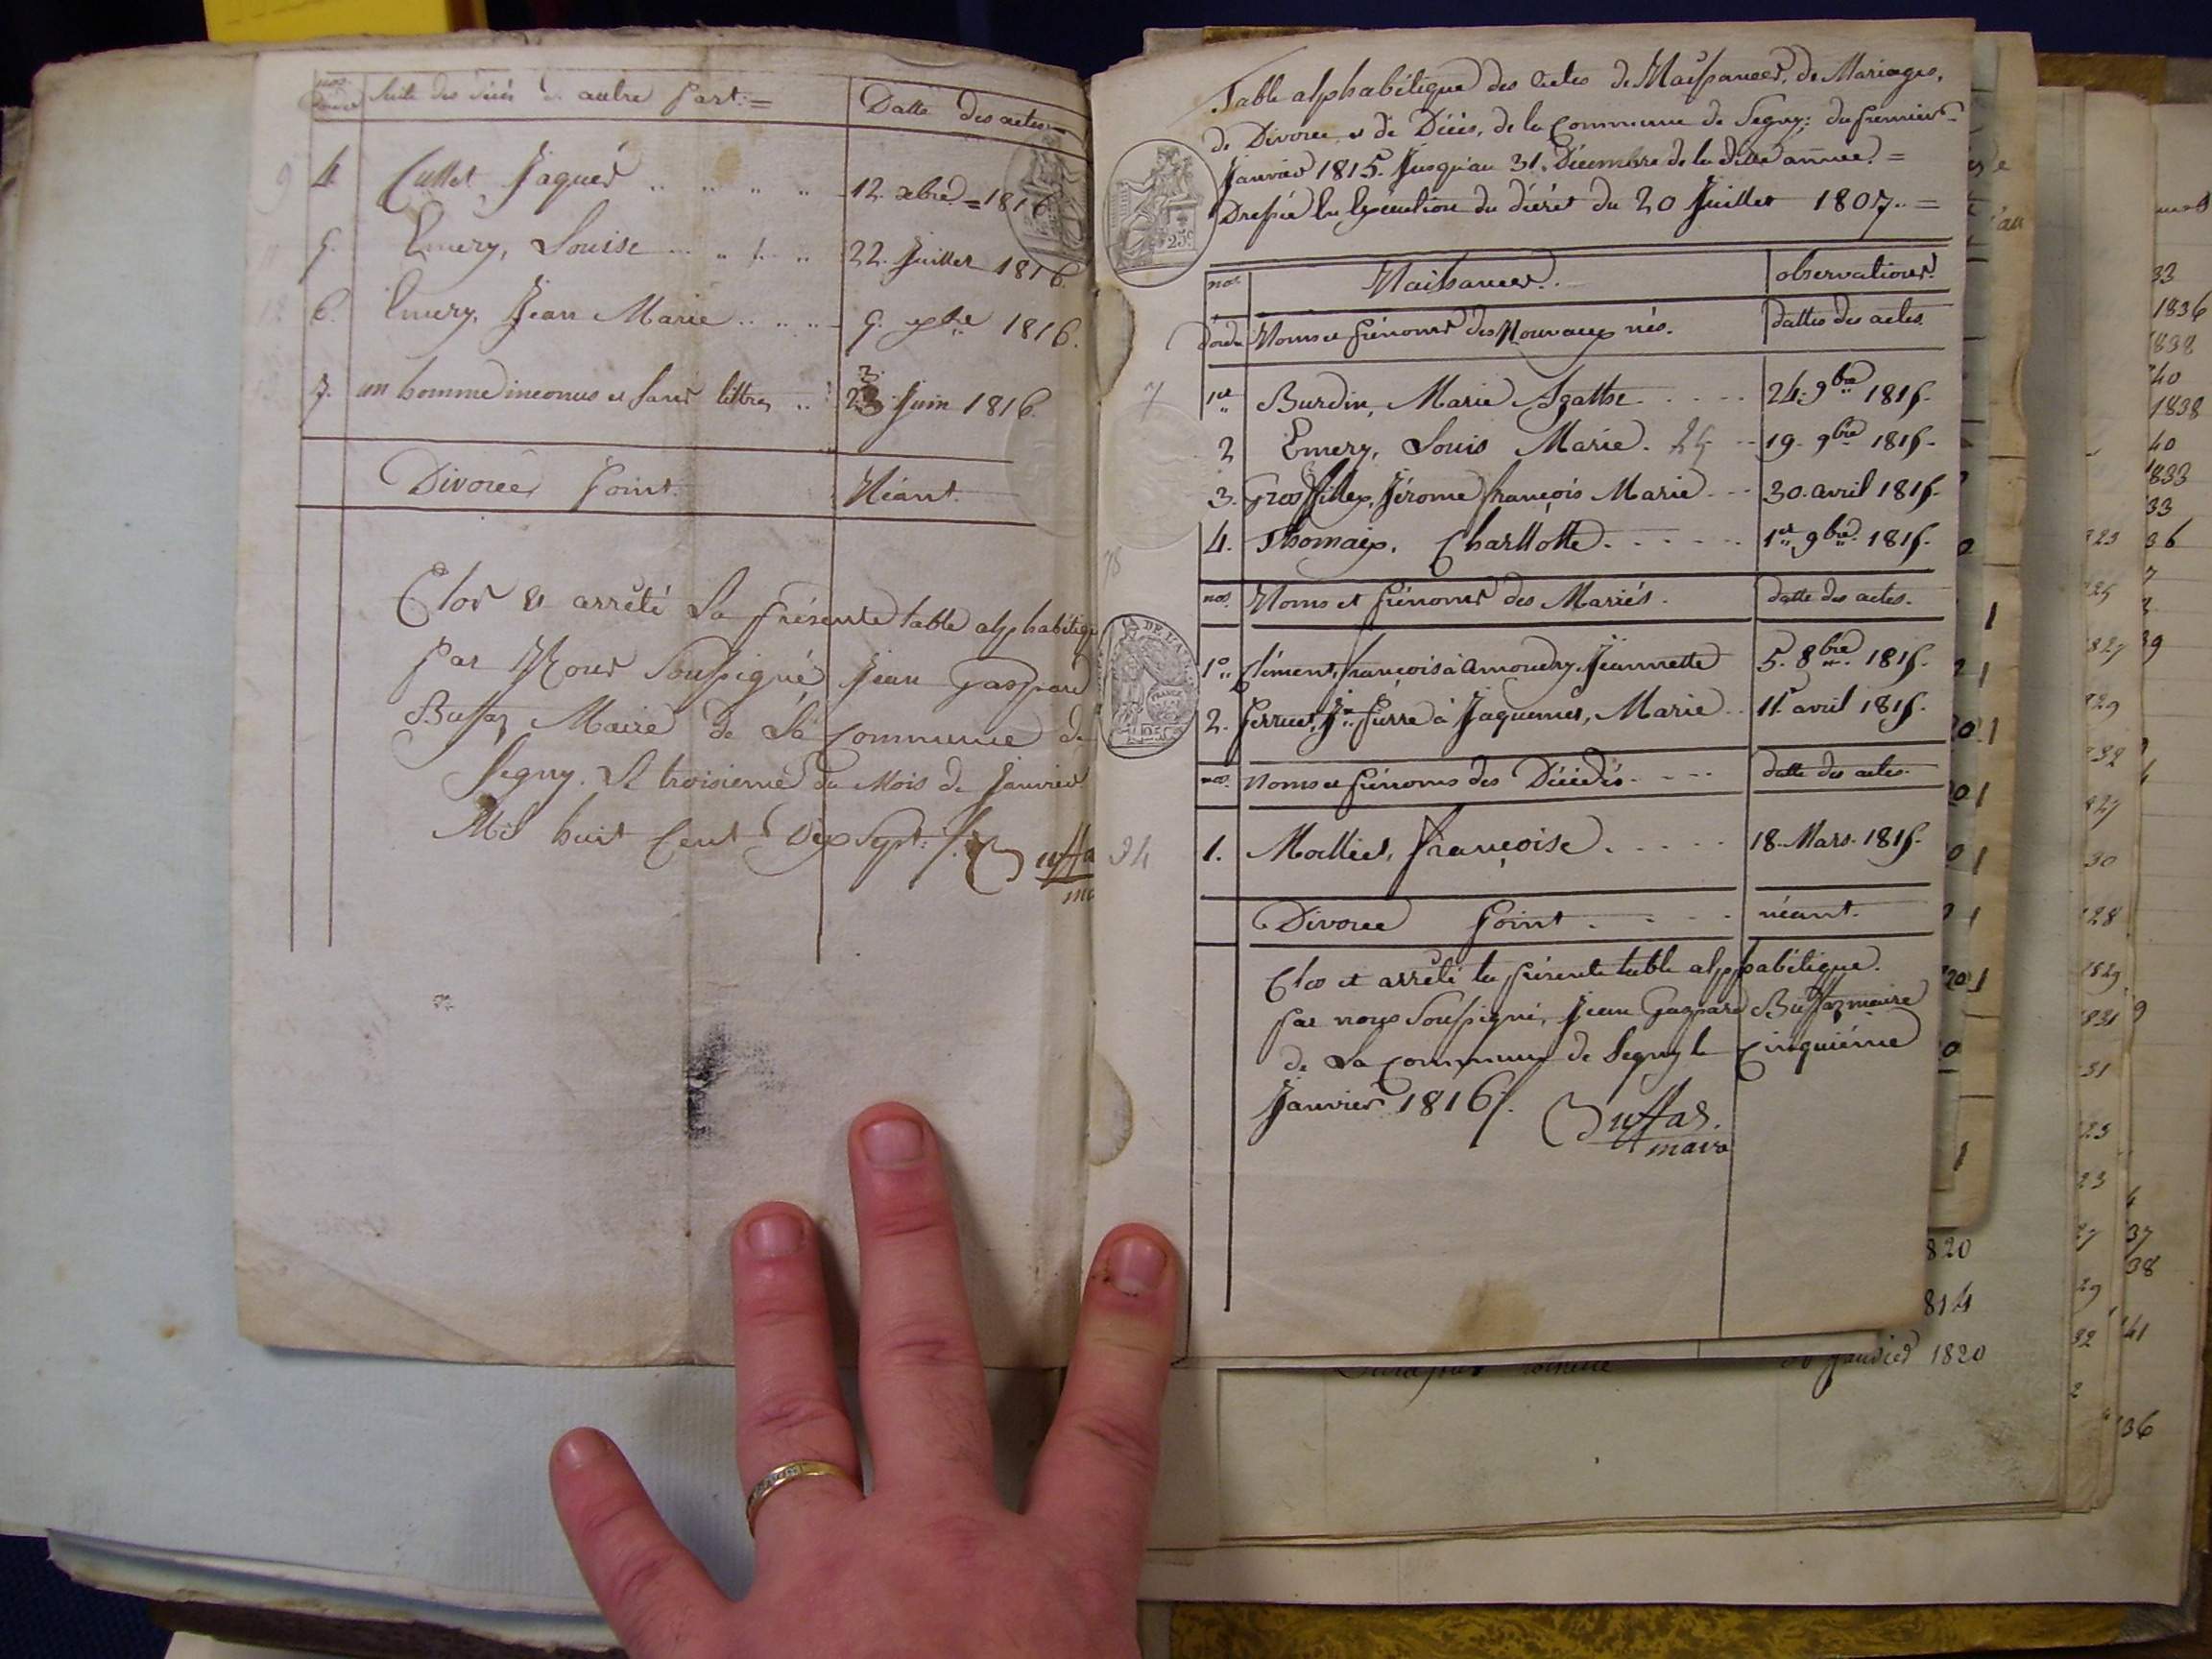 nos
Suite des décés autre part = Datte des actes =
4. Cuttet Jaques 12. xbre = 1816
5. Emery, Louise 22. Juillet 1816.
6. Emery, Jean Marie 9. 1816.
7. un homme inconus et sans lettres 23 Juin 1816.
Divorces point. Néant.
Clos et arrêté La présente table alphabétiq
par Nous soussigné Jean Gaspard
Buffaz Maire de La Commune de
Segny. Le troisieme du Mois de Janvier
Mil huit Cent dix Sept.
Table alphabétique des Actes de Naissances, de Mariages,
de Divorce et de Décés, de la Commune de Segny; du premier
Janvier 1815. Jusqu'au 31. Décembre de la ditte année. =
Dressée En Execution du décret du 20 Juillet 1807. =
25c
nos Naissances. observations.
dordre Noms et prénoms des Nouveaux nés. dattes des actes.
7
1er Burdin, Marie Agathe 24. 9bre 1815.
2 Emery, Louis Marie. 19. 9bre 1815.
3. Grosfillex, Jérome françois Marie 30. avril 1815.
4. Thomaix, Charllotte 1er 9bre 1815.
nos Noms et prénoms des Mariés. datte des actes.
1o Clément, françois à Amoudry, Jeannette 5. 8bre 1815.
2. perruet, Jn pierre à Jaquemet, Marie 11. avril 1815.
nos. Noms et prénoms des Décédés datte des actes.
1. Molliet, françoise 18. Mars. 1815.
Divorce point néant.
Clos et arrêté la présente table alphabétique.
par nous Soussigné, Jean Gaspard Buffaz maire
de La commune de Segny le Cinquiéme
Janvier 1816.
Buffaz.
maire
Janvier 1820